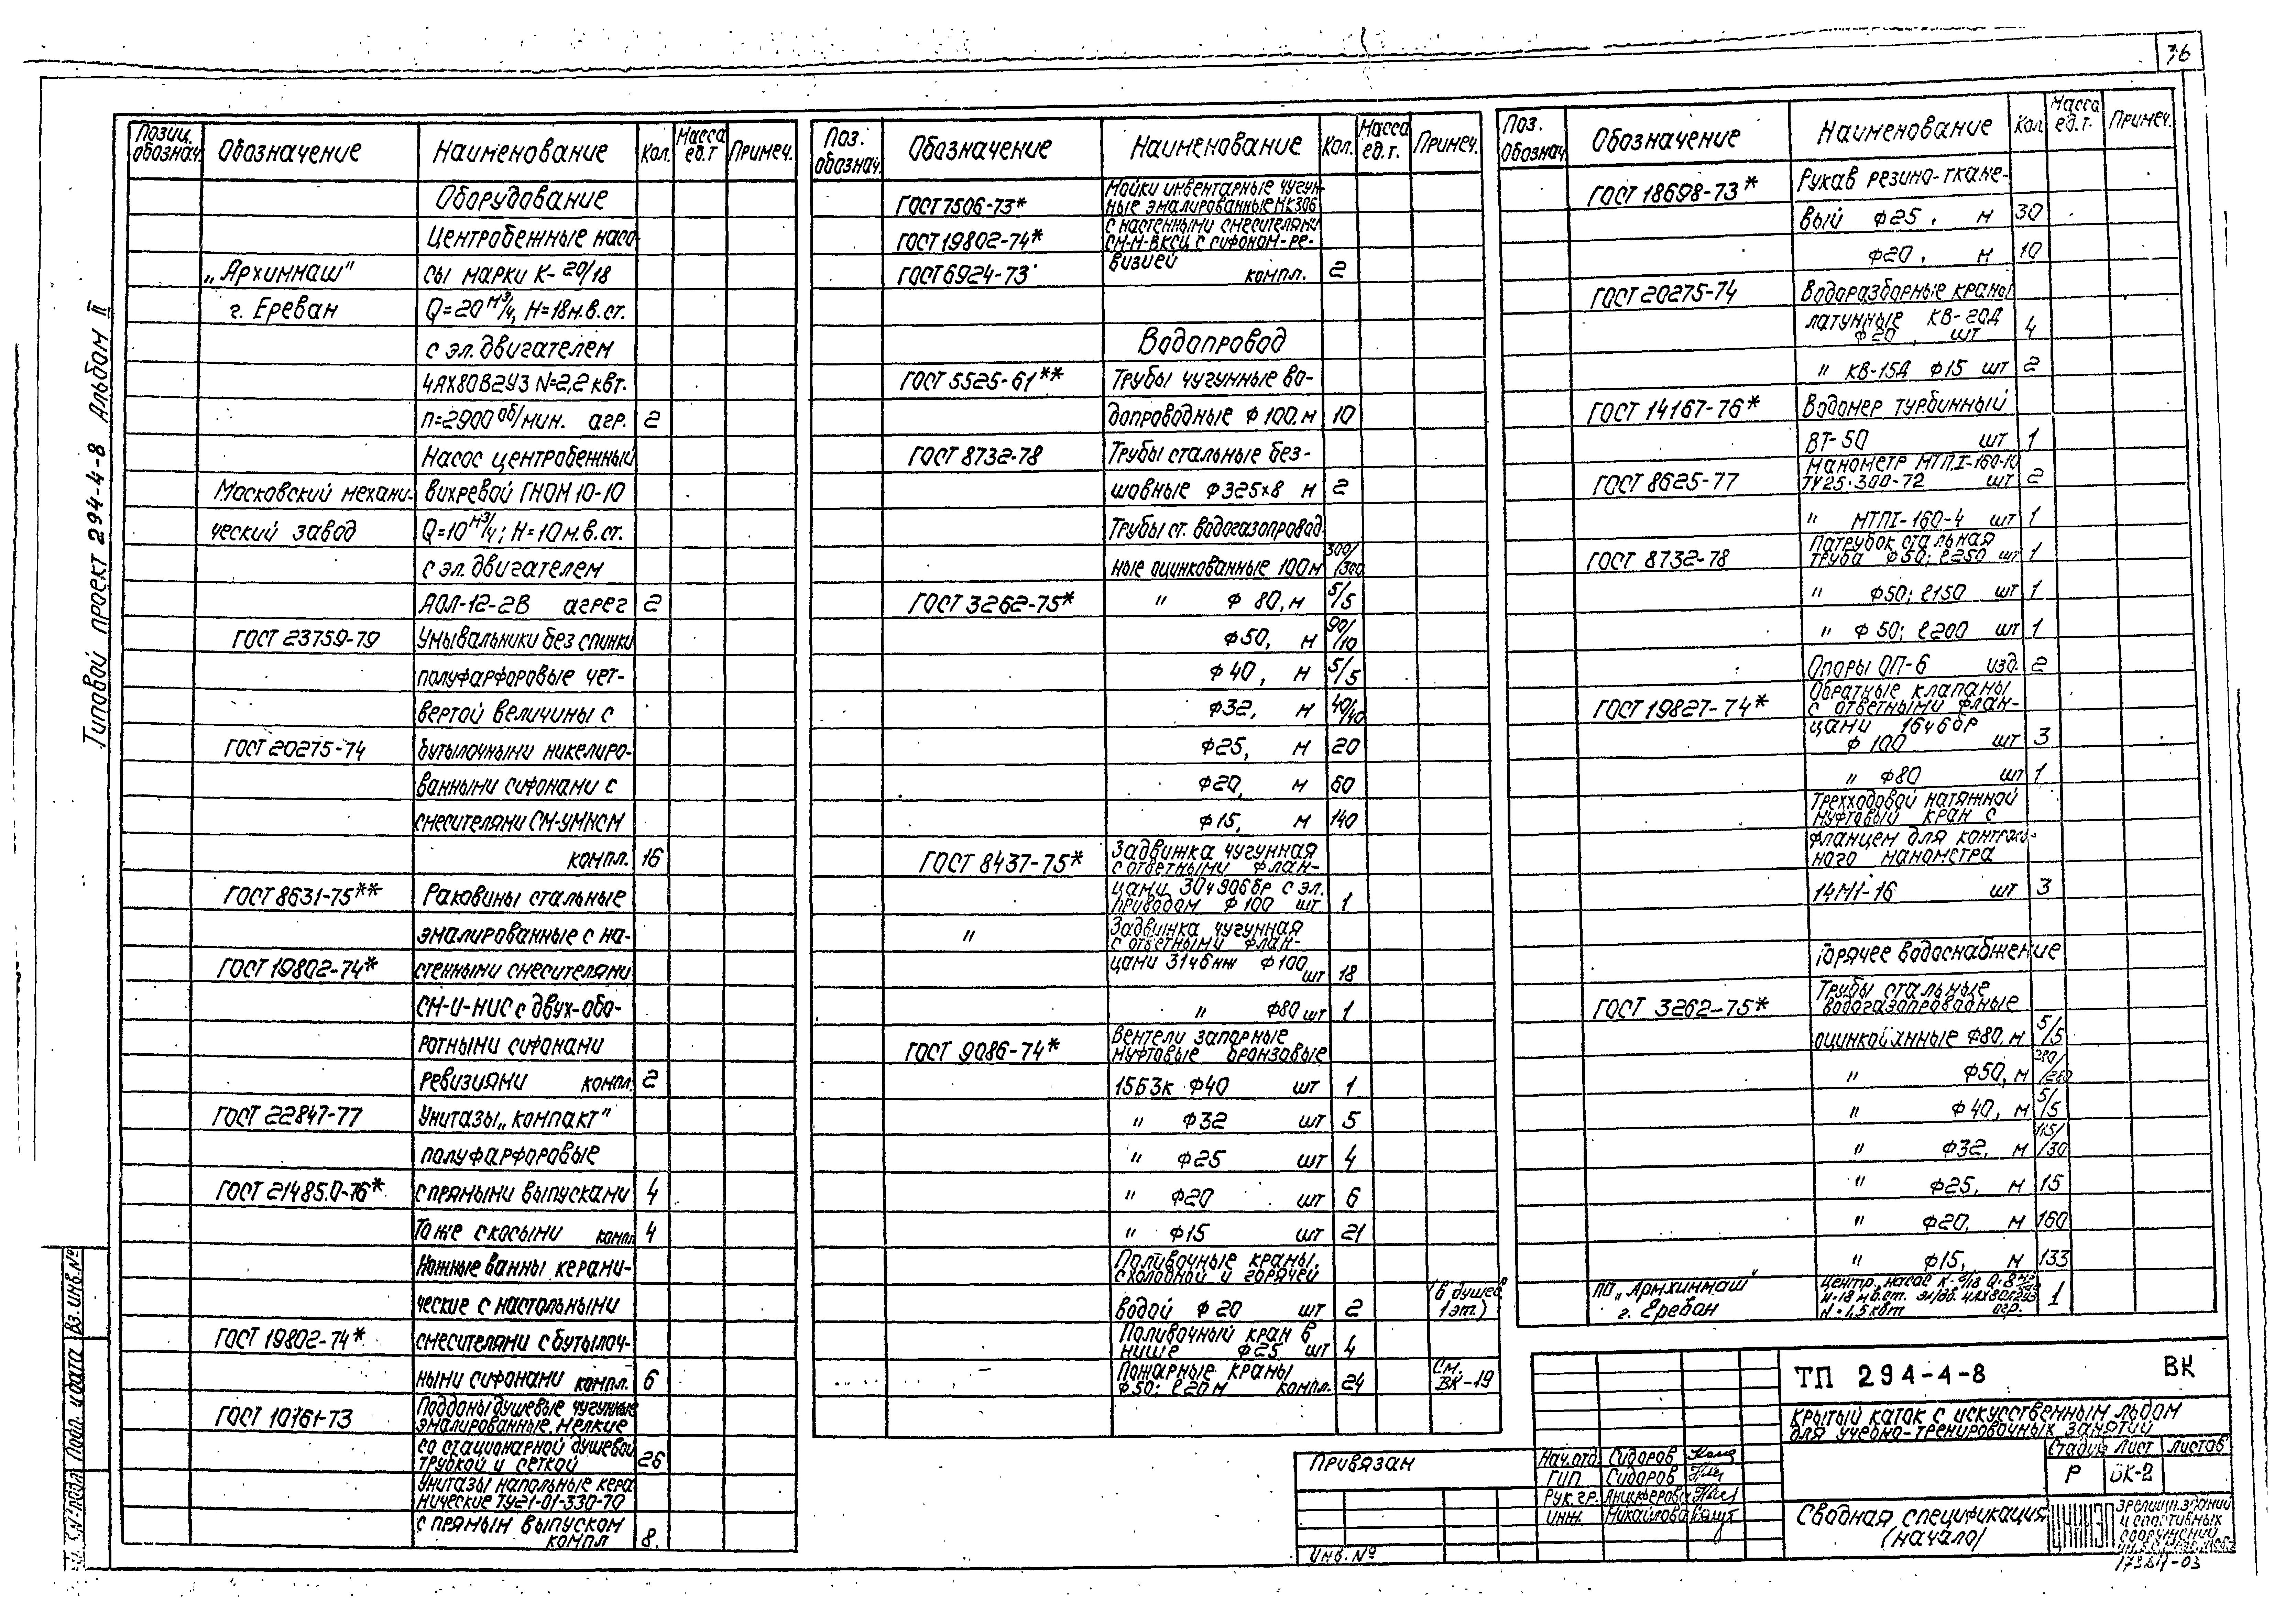 36
Типовой проект 294-4-8 Альбом II
Позиц. обознач. Обозначение Наименование Кол. Масса ед.т Примеч.
Оборудование
Центробежные насо-
„Архиммаш" сы марки К-20/18
г. Ереван Q=20 м³/ч, Н=18м.в.ст.
с эл. двигателем
4АХ80В2У3 N=2,2 квт.
п=2900 об/мин. агр. 2
Насос центробежный
Московский механи- вихревой ГНОМ 10-10
ческий завод Q=10 м³/ч; Н=10м.в.ст.
с эл. двигателем
АОЛ-12-2В агрег 2
ГОСТ 23759-79 Умывальники без спинки
полуфарфоровые чет-
вертой величины с
ГОСТ 20275-74 бутылочными никелиро-
ванными сифонами с
смесителями СМ-УМНСМ
компл. 16
ГОСТ 8631-75** Раковины стальные
эмалированные с на-
ГОСТ 19802-74* стенными смесителями
СМ-И-НИС с двух-обо-
ротными сифонами
ревизиями компл. 2
ГОСТ 22847-77 Унитазы „компакт"
полуфарфоровые
ГОСТ 21485.0-76* с прямыми выпусками 4
То же с косыми компл 4
Ножные ванны керами-
ческие с настольными
ГОСТ 19802-74* смесителями с бутылоч-
ными сифонами компл. 6
ГОСТ 10761-73 Поддоны душевые чугунные
эмалированные, мелкие
со стационарной душевой
трубкой и сеткой 26
Унитазы напольные кера
мические ТУ21-01-330-70
с прямым выпуском
компл 8.
Поз. обознач. Обозначение Наименование Кол. Масса ед.т. Примеч.
ГОСТ 7506-73* Мойки инвентарные чугун-
ные эмалированные МК306
ГОСТ 19802-74* с настенными смесителями
СМ-М-ВКСЦ с сифоном-ре-
ГОСТ 6924-73 визией компл. 2
Водопровод
ГОСТ 5525-61** Трубы чугунные во-
допроводные ф 100, м 10
ГОСТ 8732-78 Трубы стальные без-
шовные ф325х8 м 2
Трубы ст. водогазопровод
ные оцинкованные 100 м 300/300
ГОСТ 3262-75* " ф 80, м 5/5
ф50, м 90/10
ф40, м 5/5
ф32, м 40/40
ф25, м 20
ф20, м 60
ф15, м 140
ГОСТ 8437-75* Задвижка чугунная
с ответными флан-
цами 30ч906бр с эл.
приводом ф100 шт 1
" Задвижка чугунная
с ответными флан-
цами 31ч6нж ф100
шт 18
" ф80 шт 1
ГОСТ 9086-74* Вентели запорные
муфтовые бронзовые
15Б3к ф40 шт 1
" ф32 шт 5
" ф25 шт 4
" ф20 шт 6
" ф15 шт 21
Поливочные краны,
с холодной и горячей
водой ф 20 шт 2 (в душев 1 эт.)
Поливочный кран в
нише ф25 шт 4
Пожарные краны
ф50; ℓ20м компл. 24 См. ВК-19
Поз. обознач. Обозначение Наименование Кол. Масса ед.т. Примеч.
ГОСТ 18698-73* Рукав резино-ткане-
вый ф25, м 30
ф20, м 10
ГОСТ 20275-74 Водоразборные краны
латунные КВ-20Д
ф20, шт 4
" КВ-15Д ф15 шт 2
ГОСТ 14167-76* Водомер турбинный
ВТ-50 шт 1
ГОСТ 8625-77 Манометр МТП.I-160-10
ТУ25.300-72 шт 2
" МТПI-160-4 шт 1
ГОСТ 8732-78 Патрубок стальная
труба ф50; ℓ250 шт 1
" ф50; ℓ150 шт 1
" ф50; ℓ200 шт 1
Опоры ОП-6 изд. 2
ГОСТ 19827-74* Обратные клапаны
с ответными флан-
цами 16ч6бр
ф100 шт 3
" ф80 шт 1
Трехходовой натяжной
муфтовый кран с
фланцем для контроль-
ного манометра
14М1-16 шт 3
Горячее водоснабжение
ГОСТ 3262-75* Трубы стальные
водогазопроводные
оцинкованные ф80, м 5/5
" ф50, м 280/280
" ф40, м 5/5
" ф32, м 115/30
" ф25, м 15
" ф20, м 160
" ф15, м 133
по „Армхиммаш" Центр. насос
г. Ереван Н=18 м.в.ст.
N=1,5 квт агр. 1
ТП 294-4-8 ВК
Крытый каток с искусственным льдом
для учебно-тренировочных занятий
Стадия Лист Листов
Р ВК-2
Сводная спецификация
(начало)
зрелищн. зданий
и спортивных
сооружений
Привязан
Инв. №
Нач.отд. Сидоров
ГИП Сидоров
Рук. гр. Анциферова
инж. Михайлова
Подп. и дата Вз. инв. №